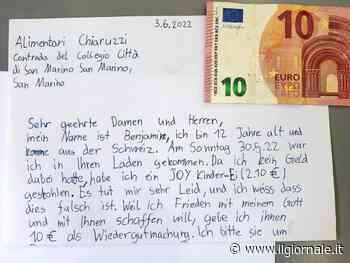 3.6.2022
Alimentari Chiaruzzi
Contrada del Collegio Città
di San Marino San Marino,
San Marino
10
10
EURO
Sehr geehrte Damen und Herren,
mein Name ist Benjamin, ich bin 12 Jahre alt und
aus der Schweiz. Am Sonntag 30.5.22 war
ich in Ihren Laden gekommen. Da ich kein Geld
dabei hatte, habe ich ein JOY Kinder-Ei (2.10 €)
gestohlen. Es tut mir sehr Leid, und ich weiss dass
dies falsch ist. Weil ich Frieden mit meinem Gott
und mit Ihnen schaffen will, gebe ich ihnen
10 € als Wiedergutmachung. Ich bitte sie um
www.ilgiornale.it